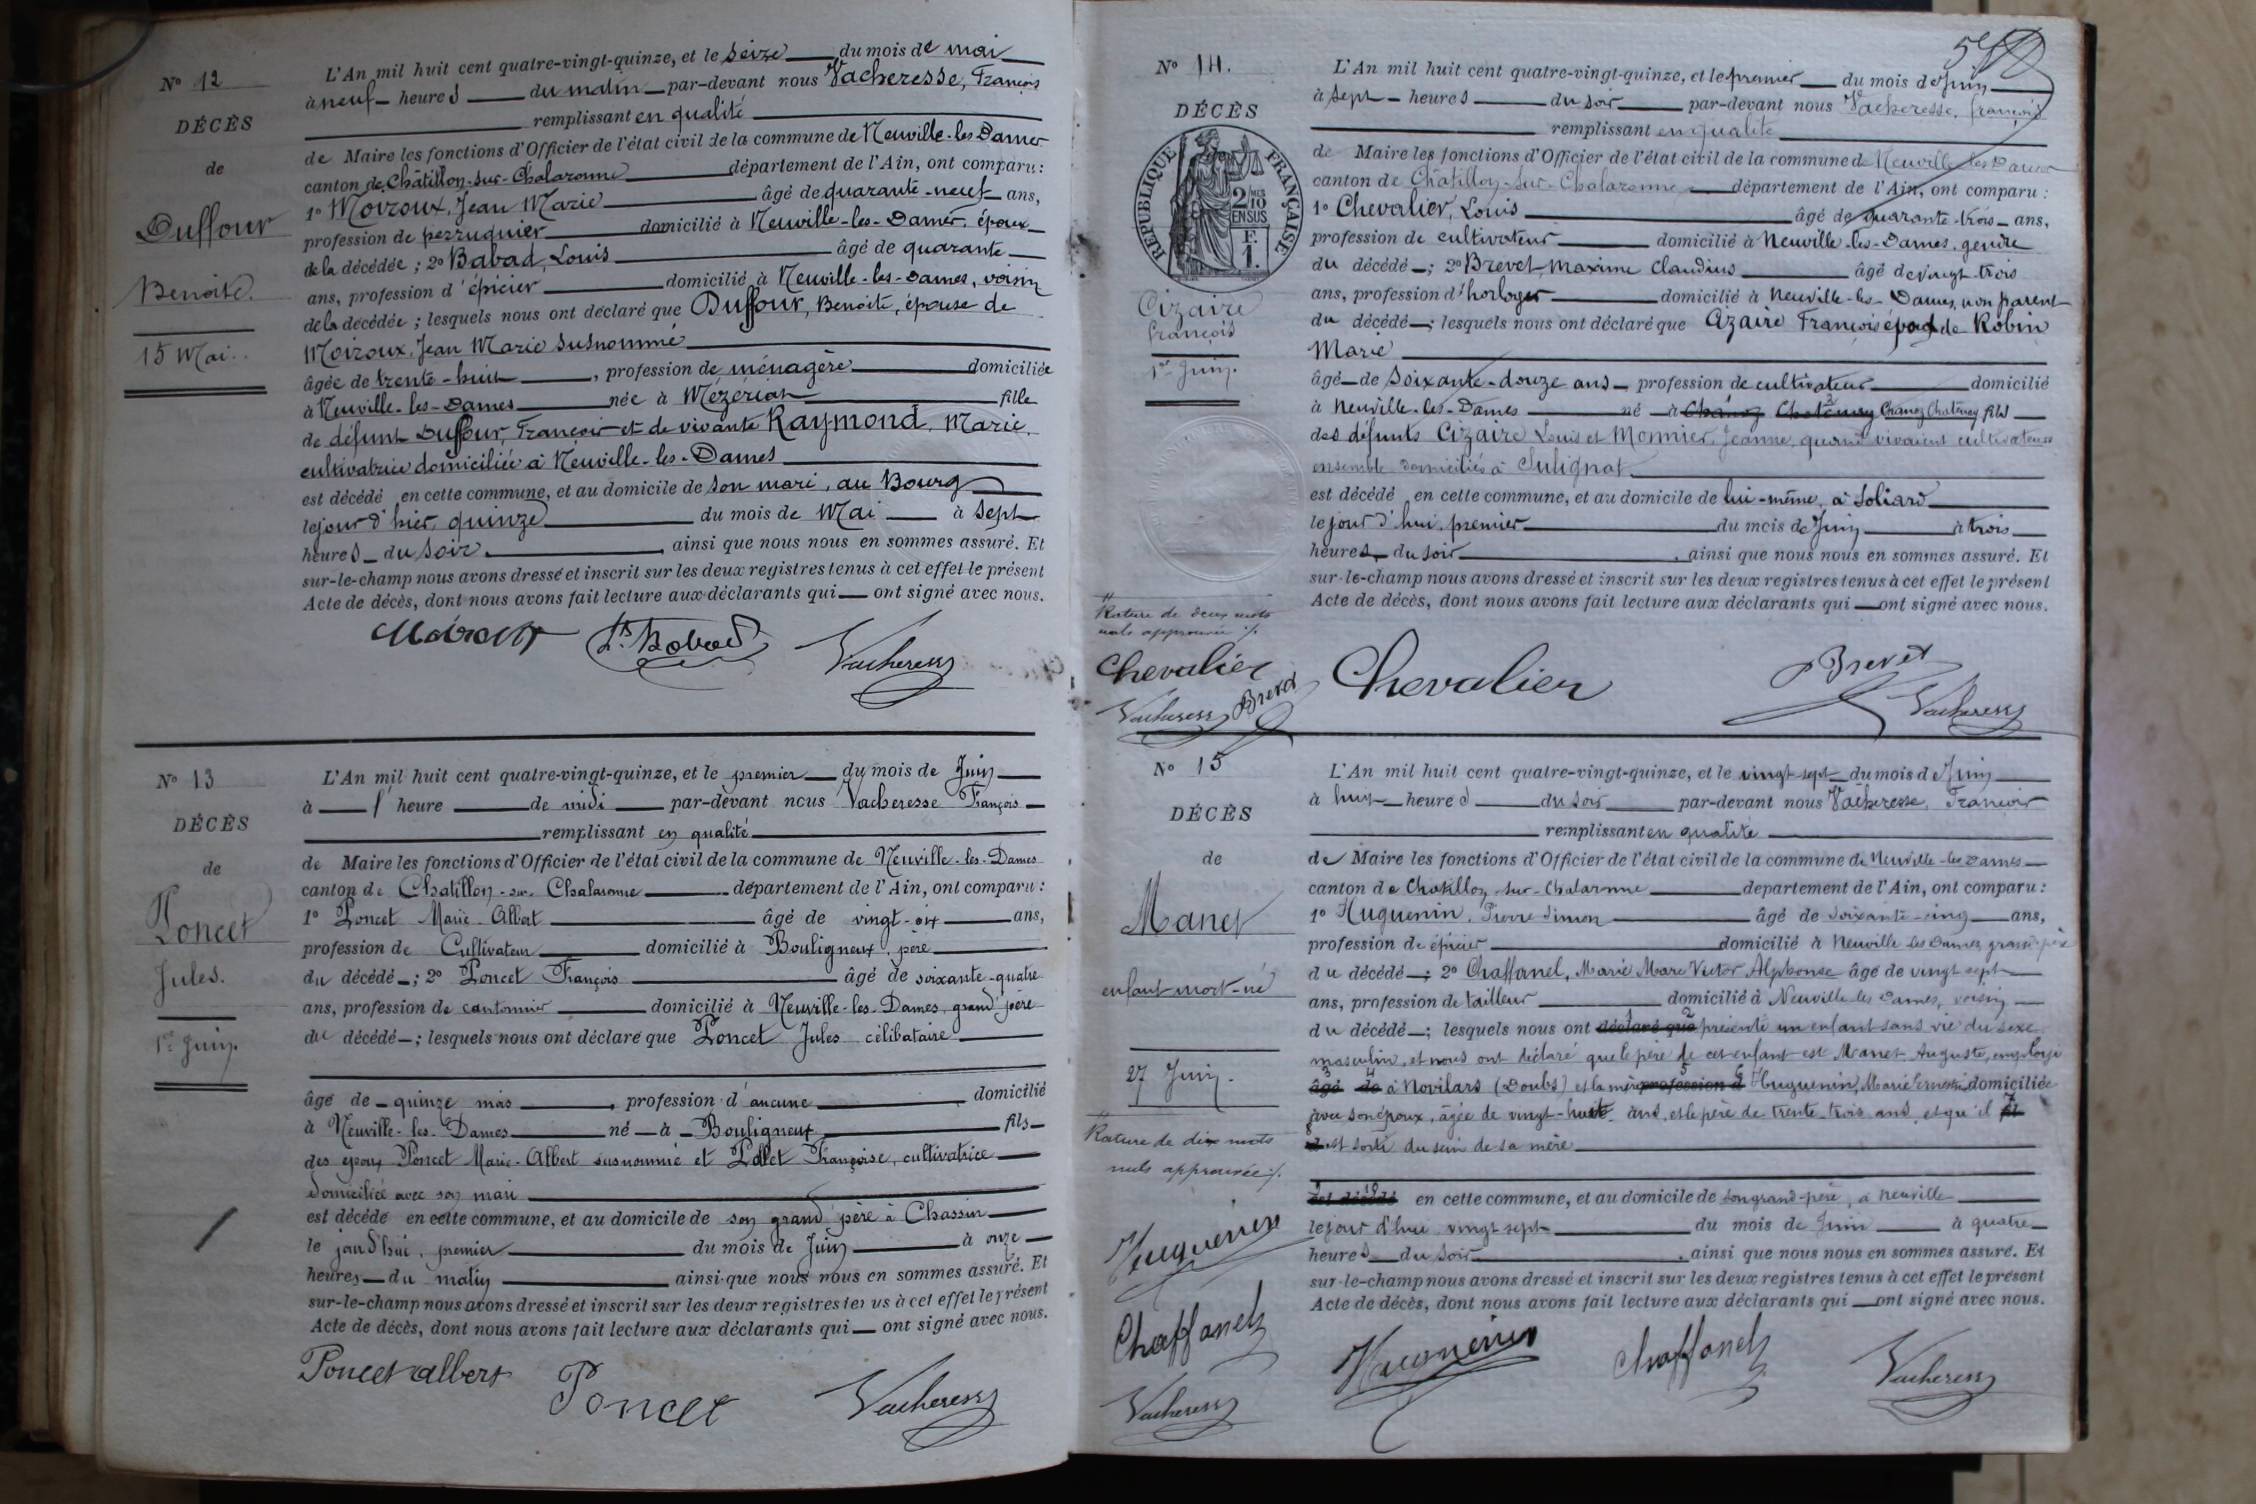 Nº 12
DÉCÈS
de
Duffour
Benoite.
15 Mai.
L'An mil huit cent quatre-vingt-quinze, et le seize du mois de mai
à neuf heures du matin par-devant nous Vacheresse, François
remplissant en qualité
de Maire les fonctions d'Officier de l'état civil de la commune de Neuville-les-Dames
canton de Châtillon-sur-Chalaronne département de l'Ain, ont comparu :
1º Moizoux, Jean Marie âgé de quarante-neuf ans,
profession de perruquier domicilié à Neuville-les-Dames, époux
de la décédée ; 2º Babad, Louis âgé de quarante
ans, profession d'épicier domicilié à Neuville-les-Dames, voisin
de la décédée ; lesquels nous ont déclaré que Duffour, Benoite, épouse de
Moizoux, Jean Marie susnommé
âgée de trente-huit, profession de ménagère domiciliée
à Neuville-les-Dames née à Mézériat fille
de défunt Duffour, François et de vivante Raymond, Marie,
cultivatrice domiciliée à Neuville-les-Dames
est décédé en cette commune, et au domicile de son mari, au Bourg
le jour d'hier, quinze du mois de Mai à sept
heures du soir, ainsi que nous nous en sommes assuré. Et
sur-le-champ nous avons dressé et inscrit sur les deux registres tenus à cet effet le présent
Acte de décès, dont nous avons fait lecture aux déclarants qui ont signé avec nous.
Ls Babad Vacheresse
Nº 13
DÉCÈS
de
Poncet
Jules.
1er Juin.
L'An mil huit cent quatre-vingt-quinze, et le premier du mois de Juin
à 1 heure de midi par-devant nous Vacheresse François
remplissant en qualité
de Maire les fonctions d'Officier de l'état civil de la commune de Neuville-les-Dames
canton de Chatillon-sur-Chalaronne département de l'Ain, ont comparu :
1º Poncet Marie-Albert âgé de vingt-six ans,
profession de Cultivateur domicilié à Bouligneux, père
du décédé ; 2º Poncet François âgé de soixante-quatre
ans, profession de cantonnier domicilié à Neuville-les-Dames, grand père
du décédé ; lesquels nous ont déclaré que Poncet Jules célibataire
âgé de quinze mois, profession d'aucune domicilié
à Neuville-les-Dames né à Bouligneux fils
des époux Poncet Marie-Albert susnommé et Françoise, cultivatrice
domiciliée avec son mari
est décédé en cette commune, et au domicile de son grand père à Chassin
le jour d'hui, premier du mois de Juin à onze
heures du matin ainsi que nous nous en sommes assuré. Et
sur-le-champ nous avons dressé et inscrit sur les deux registres tenus à cet effet le présent
Acte de décès, dont nous avons fait lecture aux déclarants qui ont signé avec nous.
Poncet albert Poncet Vacheresse
Nº 14.
DÉCÈS
RÉPUBLIQUE FRANÇAISE
2/10 MES EN SUS
F. 1.
Cizaire
François
1er Juin.
L'An mil huit cent quatre-vingt-quinze, et le premier du mois de Juin
à sept heures du soir par-devant nous Vacheresse, françois
remplissant en qualité
de Maire les fonctions d'Officier de l'état civil de la commune de Neuville-les-Dames
canton de Châtillon-sur-Chalaronne département de l'Ain, ont comparu :
1º Chevalier, Louis âgé de quarante-trois ans,
profession de cultivateur domicilié à Neuville-les-Dames, gendre
du décédé ; 2º Brevet Maxime Claudius âgé de vingt-trois
ans, profession d'horloger domicilié à Neuville-les-Dames, non parent
du décédé ; lesquels nous ont déclaré que Cizaire François époux de Robin
Marie
âgé de soixante-douze ans profession de cultivateur domicilié
à Neuville-les-Dames né à Chanoz Chatenay Chanoz Chatenay fils
des défunts Cizaire Louis et Monnier, Jeanne, quand vivaient cultivateurs
ensemble domiciliés à Sulignat
est décédé en cette commune, et au domicile de lui-même, à Soliard
le jour d'hui, premier du mois de Juin à trois
heures du soir, ainsi que nous nous en sommes assuré. Et
sur-le-champ nous avons dressé et inscrit sur les deux registres tenus à cet effet le présent
Acte de décès, dont nous avons fait lecture aux déclarants qui ont signé avec nous.
Rature de deux mots
nuls approuvée
Chevalier
Vacheresse Brevet
Chevalier Brevet Vacheresse
Nº 15
DÉCÈS
de
Manet
enfant mort-né
27 Juin.
L'An mil huit cent quatre-vingt-quinze, et le vingt-sept du mois de Juin
à huit heures du soir par-devant nous Vacheresse, François
remplissant en qualité
de Maire les fonctions d'Officier de l'état civil de la commune de Neuville-les-Dames
canton de Chatillon-sur-Chalaronne département de l'Ain, ont comparu :
1º Huguenin, Pierre Simon âgé de soixante-cinq ans,
profession de épicier domicilié à Neuville les Dames, grand-père
du décédé ; 2º Chaffanel, Marie Marc Victor Alphonse âgé de vingt sept
ans, profession de tailleur domicilié à Neuville les Dames, voisin
du décédé ; lesquels nous ont déclaré que présenté un enfant sans vie du sexe
masculin, et nous ont déclaré que le père de cet enfant est Manet Auguste, employé
âgé de à Novilars (Doubs) et la mère profession d Huguenin, Marie Ernestine domiciliée
avec son époux, âgée de vingt-huit ans, et le père de trente trois ans, et qu'il
est sorti du sein de sa mère
est décédé en cette commune, et au domicile de son grand-père, à Neuville
le jour d'hui vingt sept du mois de Juin à quatre
heures du soir, ainsi que nous nous en sommes assuré. Et
sur-le-champ nous avons dressé et inscrit sur les deux registres tenus à cet effet le présent
Acte de décès, dont nous avons fait lecture aux déclarants qui ont signé avec nous.
Rature de dix mots
nuls approuvée
Huguenin
Chaffanel
Vacheresse
Huguenin Chaffanel Vacheresse